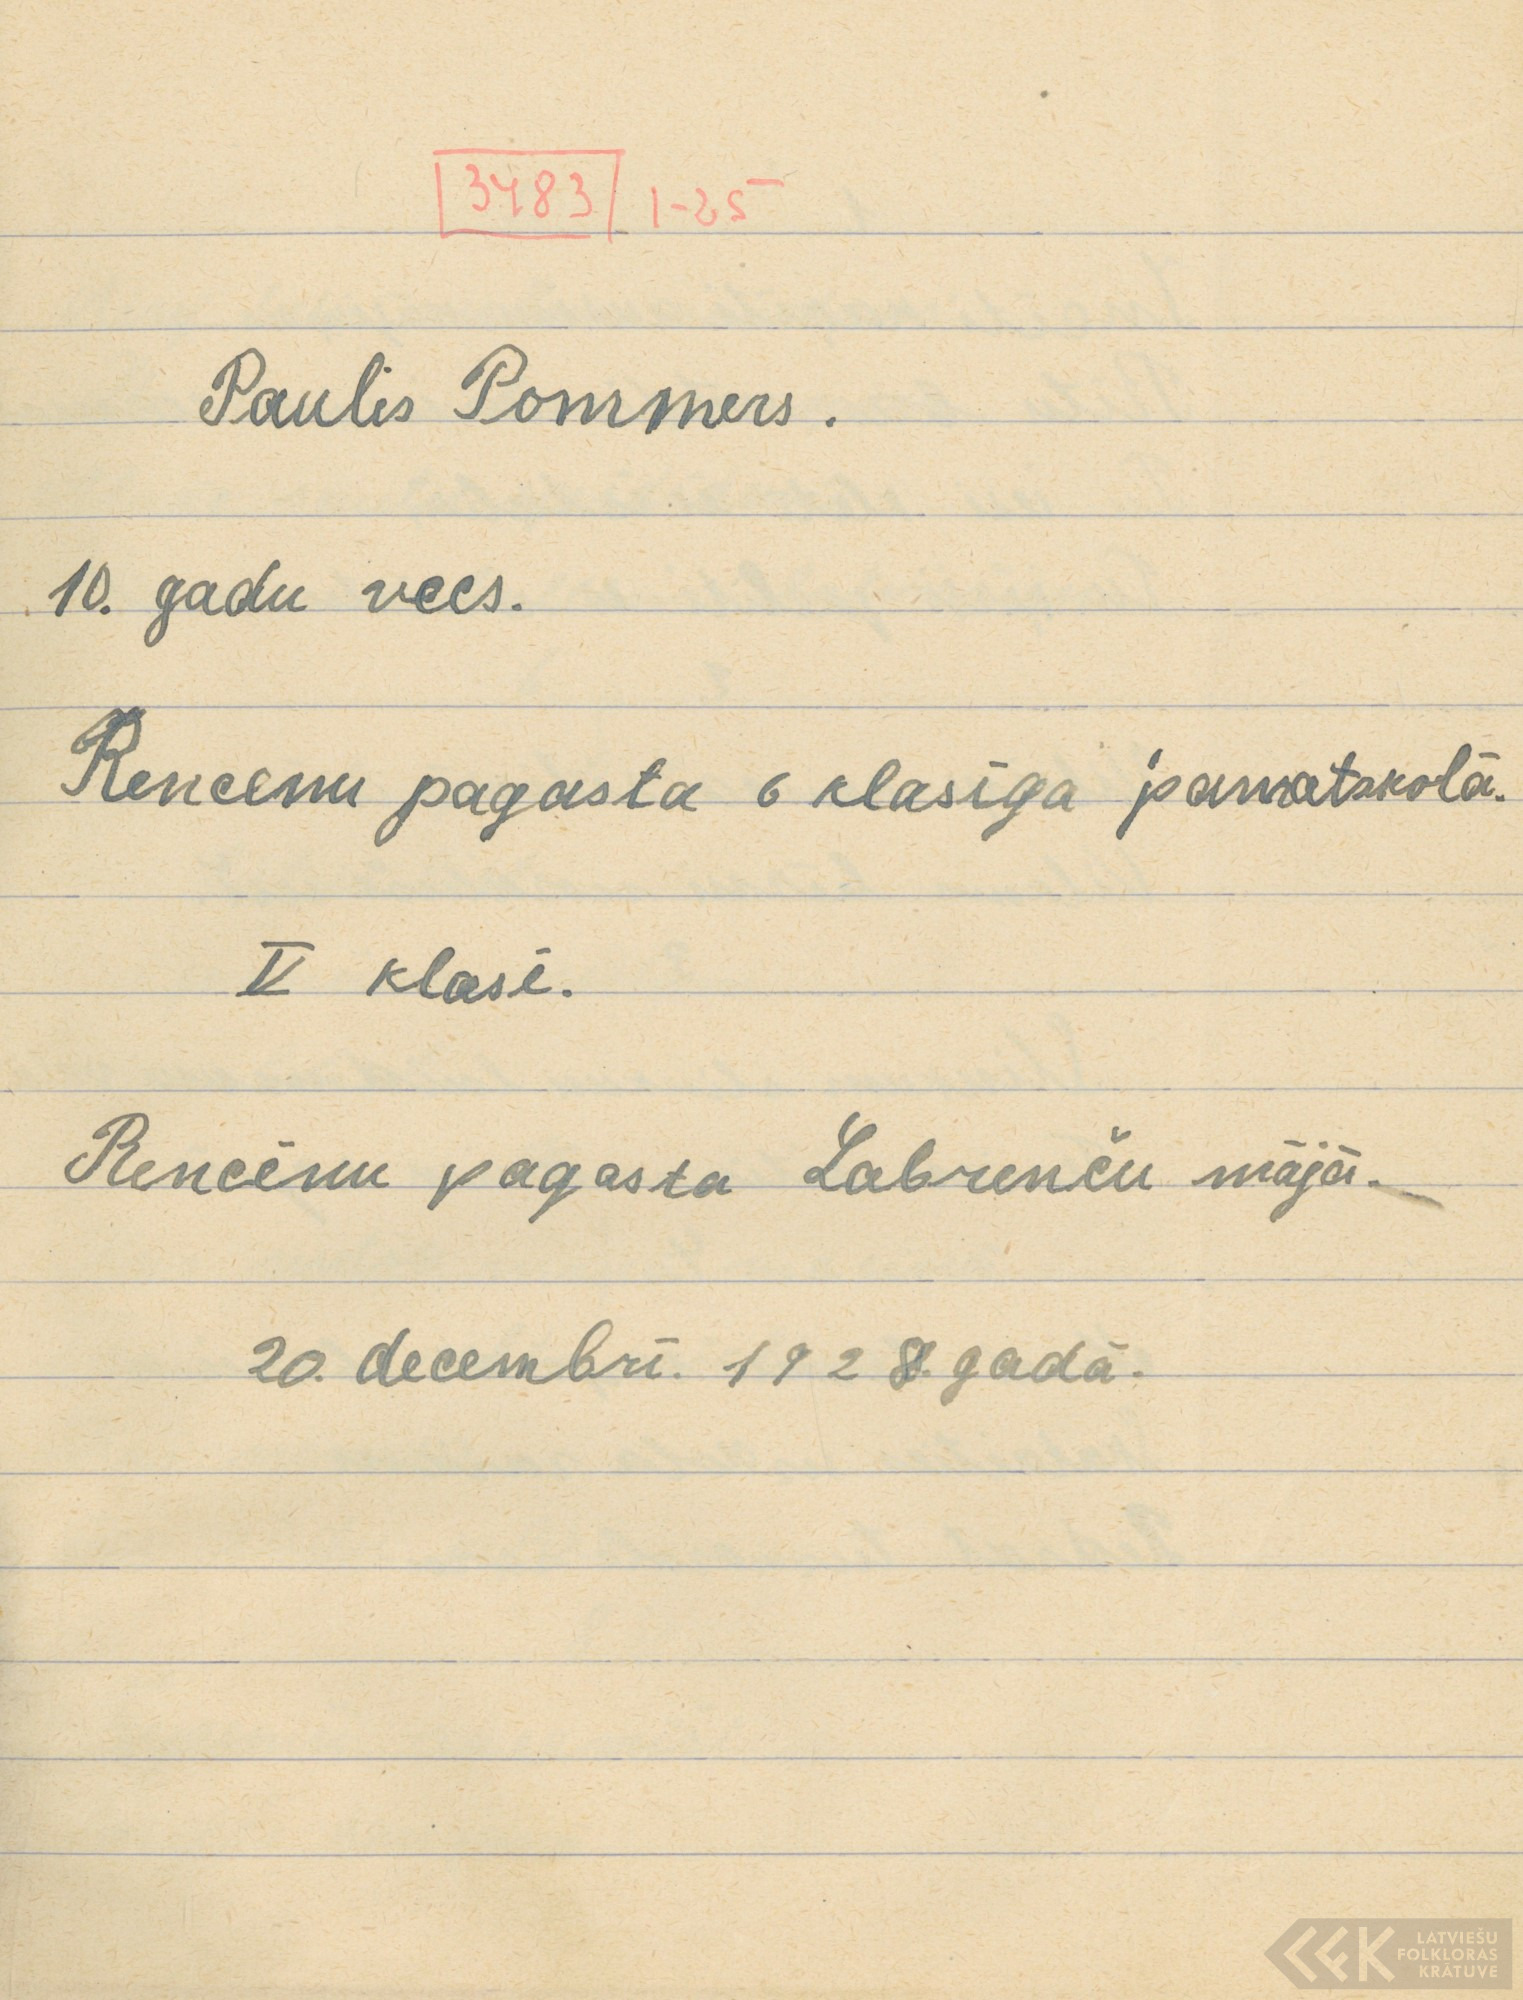 3483 1-25
Paulis Pommers.
10. gadu vecs.
Rencenu pagasta 6 klasīga pamatskolā.
V klasē.
Rencēnu pagasta Labrenču mājā.
20. decembrī. 1928. gadā.
LATVIEŠU
FOLKLORAS
KRĀTUVE